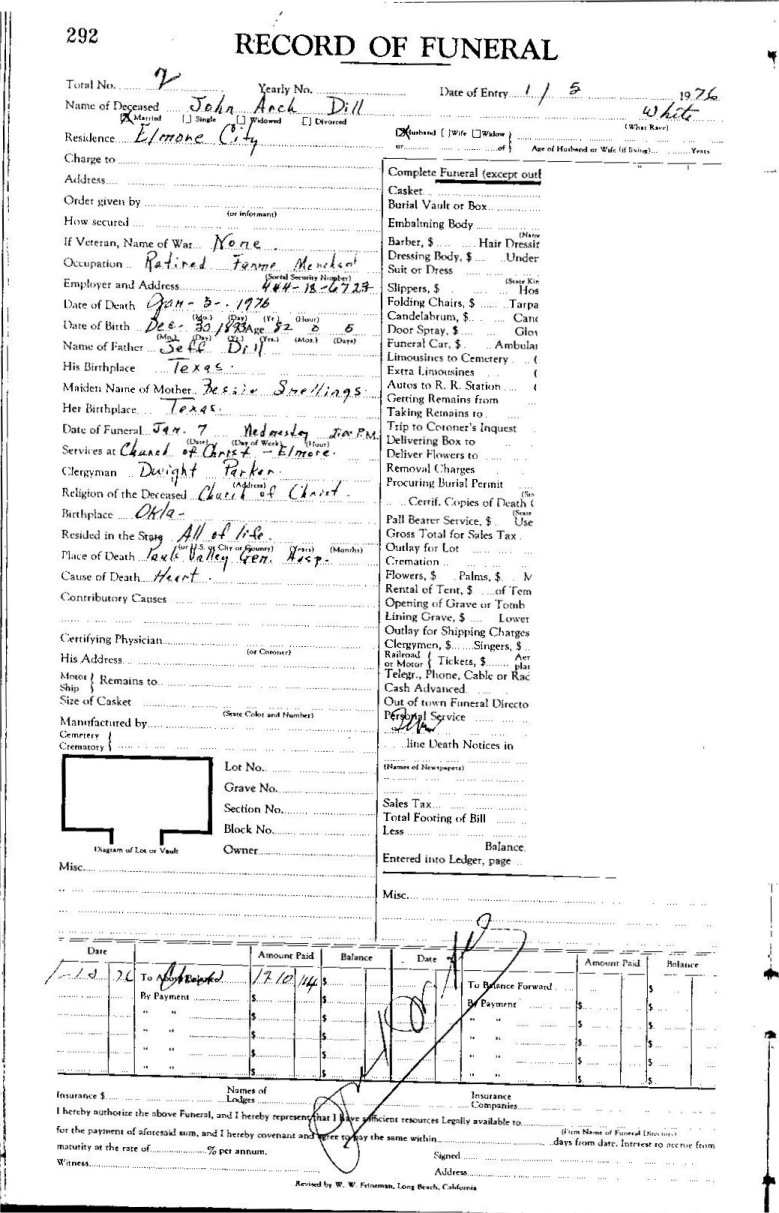 292
RECORD OF FUNERAL
Total No. 2 Yearly No. Date of Entry 1 / 5 1976
Name of Deceased John Arch Dill White
[X] Married [ ] Single [ ] Widowed [ ] Divorced (What Race)
Residence Elmore City
[X] Husband [ ] Wife [ ] Widow
or of Age of Husband or Wife (if living) Years
Charge to
Address
Order given by
(or informant)
How secured
If Veteran, Name of War None
Occupation Retired Farme Merchant
(Social Security Number)
Employer and Address 444-18-6723
Date of Death Jan - 3 - 1976
(Mo.) (Day) (Yr.) (Hour)
Date of Birth Dec - 30 1893 Age 82 0 6
(Mo.) (Day) (Yr.) (Yrs.) (Mos.) (Days)
Name of Father Jeff Dill
His Birthplace Texas
Maiden Name of Mother Bessie Snellings
Her Birthplace Texas
Date of Funeral Jan. 7 Wednesday P.M.
(Date) (Day of Week) (Hour)
Services at Church of Christ - Elmore
Clergyman Dwight Parker
(Address)
Religion of the Deceased Church of Christ
Birthplace Okla-
Resided in the State All of life
(or U.S. or City or County) (Years) (Months)
Place of Death Pauls Valley Gen. Hosp.
Cause of Death Heart
Contributory Causes
Certifying Physician
(or Coroner)
His Address
Motor
Ship Remains to
Size of Casket
(State Color and Number)
Manufactured by
Cemetery
Crematory
Lot No.
Grave No.
Section No.
Block No.
Diagram of Lot or Vault Owner
Misc.
Complete Funeral (except outl
Casket
Burial Vault or Box
Embalming Body
(Name
Barber, $ Hair Dressin
Dressing Body, $ Under
Suit or Dress
(State Kin
Slippers, $ Hos
Folding Chairs, $ Tarpa
Candelabrum, $ Canc
Door Spray, $ Glov
Funeral Car, $ Ambulan
Limousines to Cemetery (
Extra Limousines (
Autos to R. R. Station (
Getting Remains from
Taking Remains to
Trip to Coroner's Inquest
Delivering Box to
Deliver Flowers to
Removal Charges
Procuring Burial Permit
Certif. Copies of Death (
(State
Pall Bearer Service, $ Use
Gross Total for Sales Tax
Outlay for Lot
Cremation
Flowers, $ Palms, $ M
Rental of Tent, $ of Tem
Opening of Grave or Tomb
Lining Grave, $ Lower
Outlay for Shipping Charges
Clergymen, $ Singers, $
Railroad Aer
or Motor Tickets, $ plan
Telegr., Phone, Cable or Rad
Cash Advanced
Out of town Funeral Directo
Personal Service
line Death Notices in
(Names of Newspapers)
Sales Tax
Total Footing of Bill
Less
Balance
Entered into Ledger, page
Misc.
Date Amount Paid Balance Date Amount Paid Balance
76 To Above 1710 44 $ To Balance Forward $
By Payment $ $ By Payment $ $
" " $ $ " " $ $
" " $ $ " " $ $
" " $ $ " " $ $
" " $ $ " " $ $
Insurance $ Names of Lodges Insurance Companies
I hereby authorize the above Funeral, and I hereby represent that I have sufficient resources Legally available to
(Firm Name of Funeral Directors)
for the payment of aforesaid sum, and I hereby covenant and agree to pay the same within days from date. Interest to accrue from
maturity at the rate of % per annum. Signed
Witness Address
Revised by W. W. Feineman, Long Beach, California